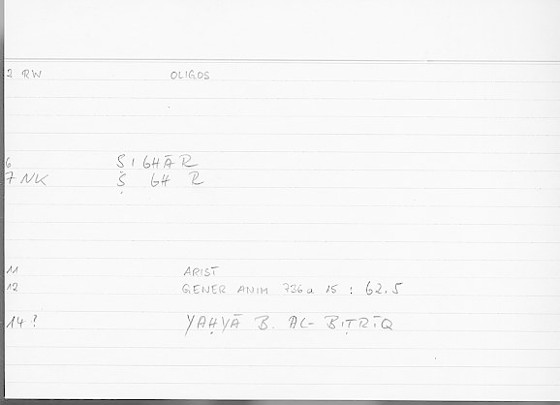 2 RW OLIGOS
6 ṢIGHĀR
7 NK Ṣ GH R
11 ARIST
12 GENER ANIM 736a 15 : 62.5
14? YAḤYĀ B. AL-BIṬRĪQ